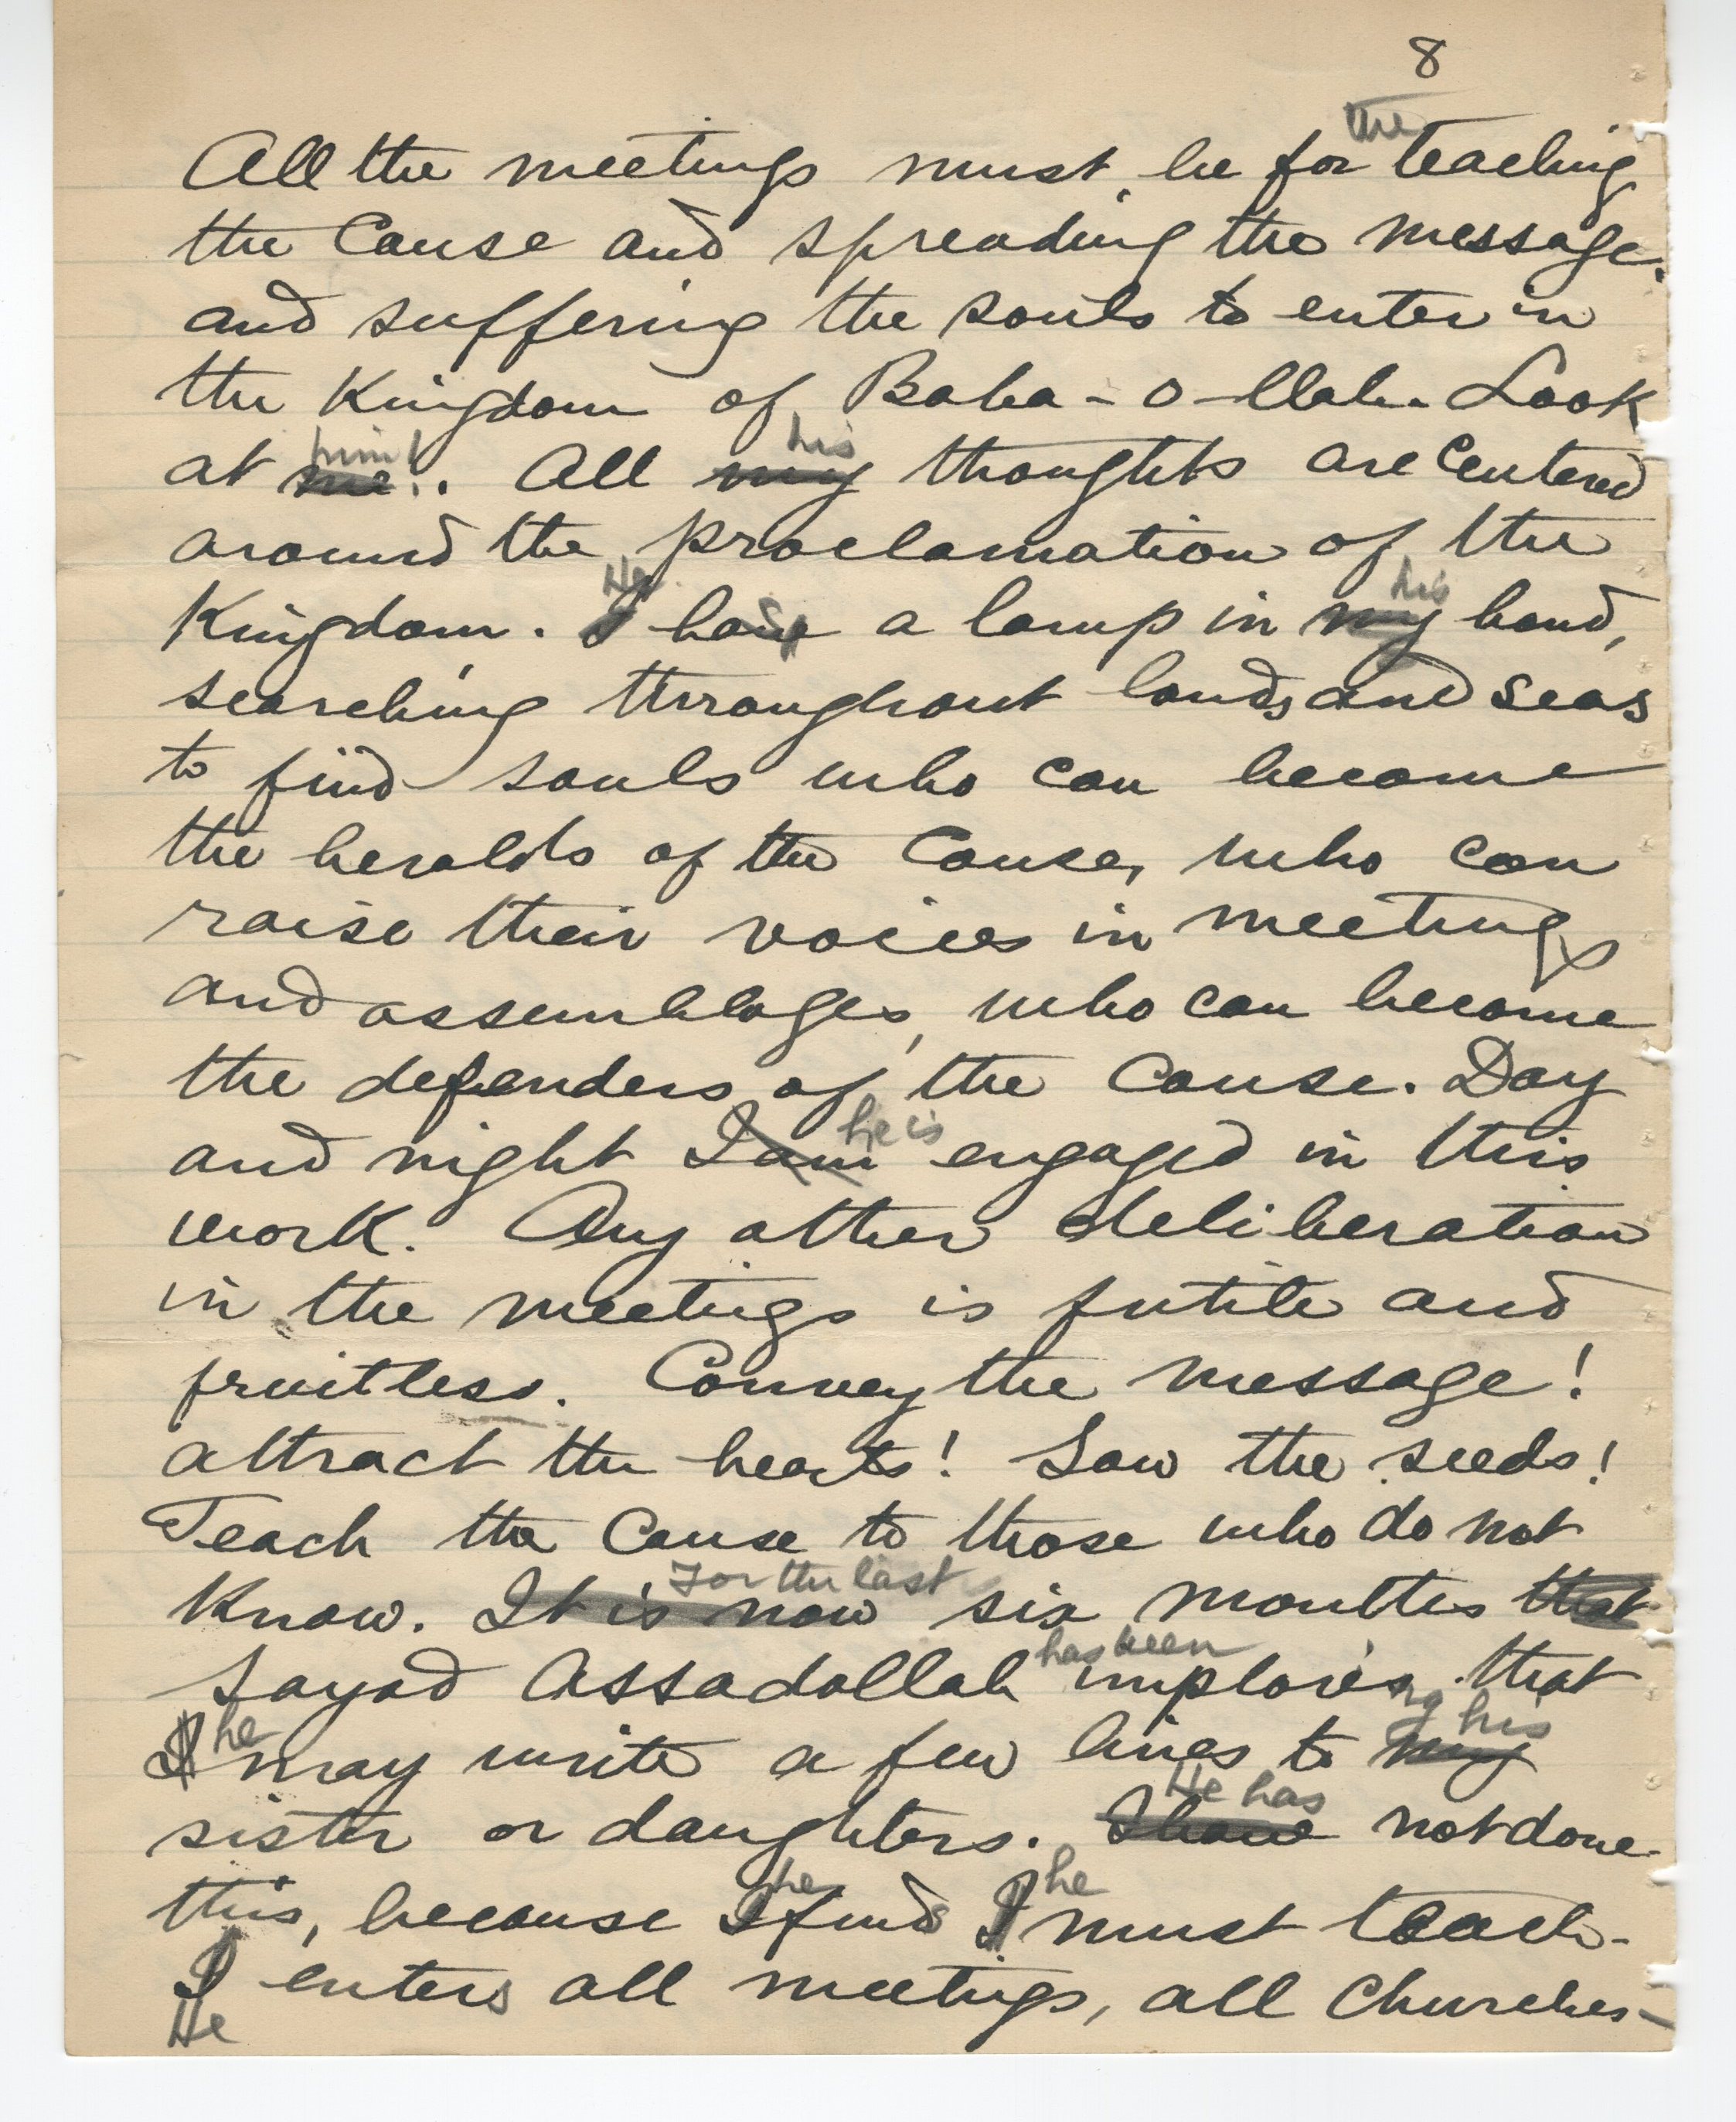 8
the
All the meetings must be for teaching
the Cause and spreading the message.
and suffering the souls to enter in
the Kingdom of Baha-o-llah. Look
him! his
at me!. All my thoughts are centered
around the proclamation of the
He his
Kingdom. I have a lamp in my hand,
searching throughout lands and seas
to find souls who can become
the heralds of the Cause, who can
raise their voices in meetings
and assemblages, who can become
the defenders of the Cause. Day
he is
and night I am engaged in this
work. Any other deliberation
in the meetings is futile and
fruitless. Convey the message!
attract the hearts! Sow the seeds!
Teach the Cause to those who do not
For the last
Know. It is now six months that
has been
Sayad Assadollah implores that
he ng his
I may write a few lines to my
He has
sister or daughters. I have not done
he he
this, because I finds I must teach.
I enters all meetings, all Churches-
He